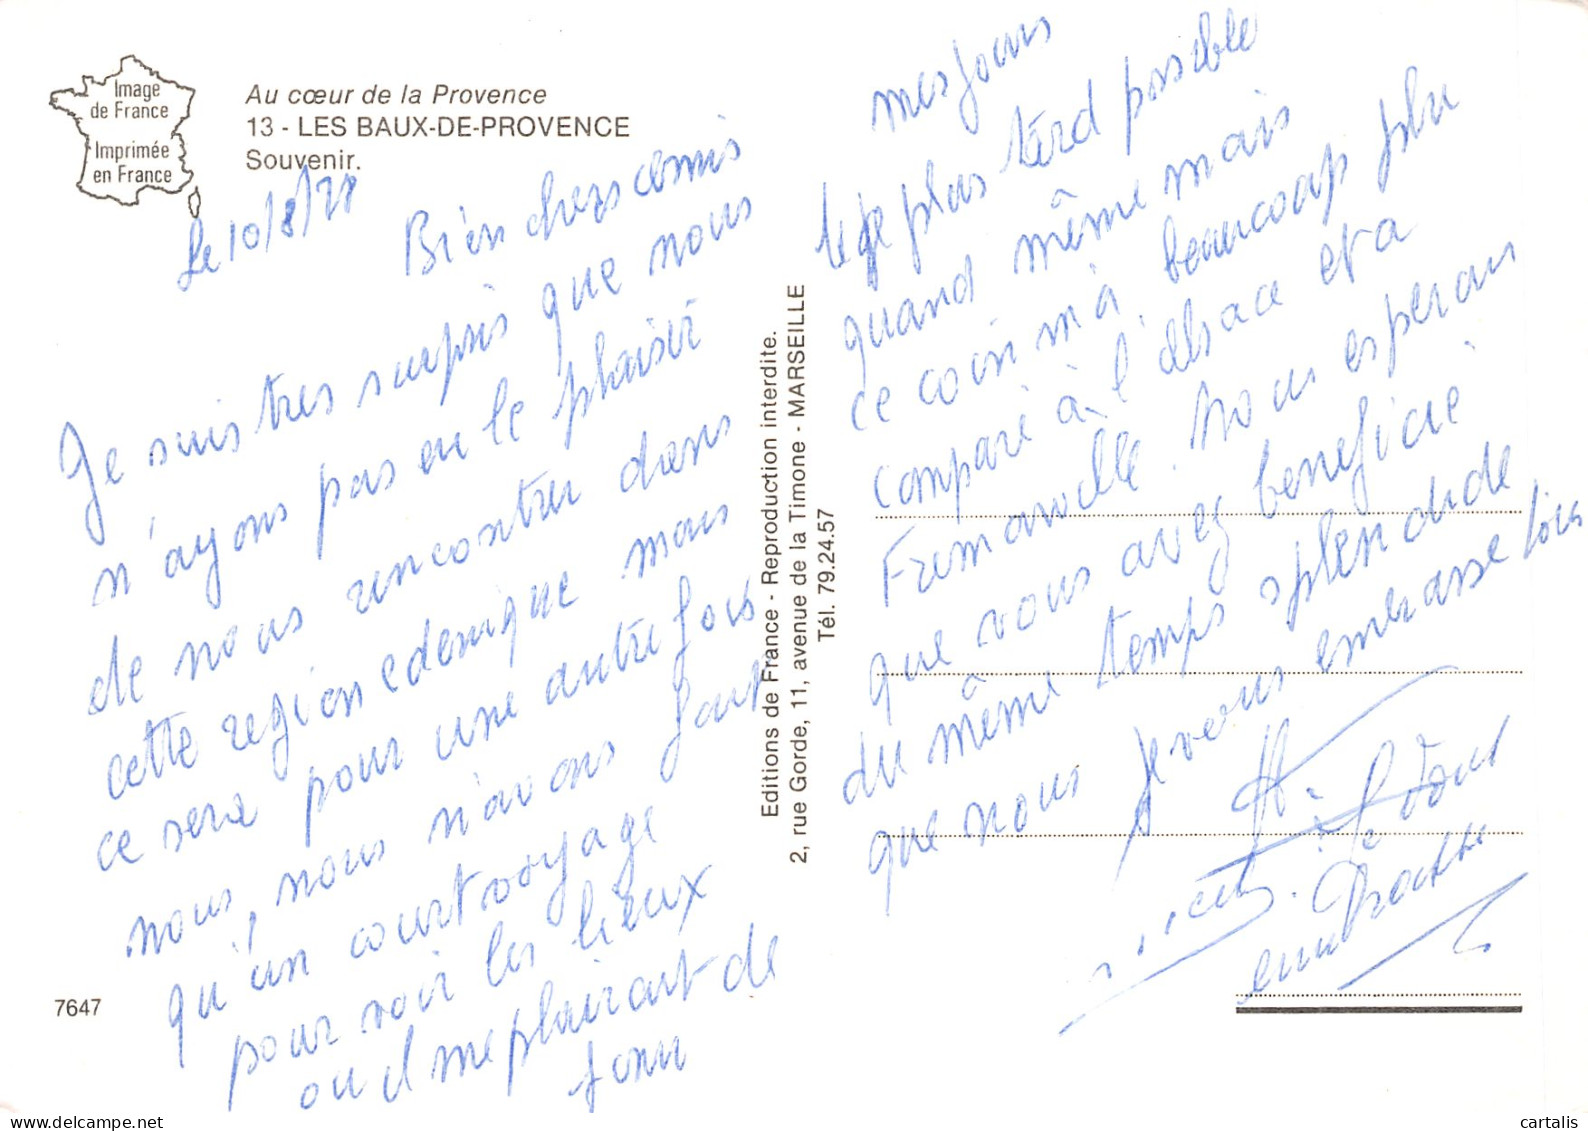 Image
de France
Imprimée
en France
Au cœur de la Provence
13 - LES BAUX-DE-PROVENCE
Souvenir.
Le 10/8/78
Bien chers amis
Je suis tres surpris que nous
n'ayons pas eu le plaisir
de nous rencontrer dans
cette region edenique mais
ce sera pour une autre fois
nous, nous n'avons fait
qu'un court voyage
pour voir les lieux
ou il me plairait de
finir
7647
Editions de France - Reproduction interdite.
2, rue Gorde, 11, avenue de la Timone - MARSEILLE
Tél. 79.24.57
mes jours
le plus tard possible
quand même mais
ce coin m'a beaucoup plu
comparé à l'alsace et a
que vous avez beneficié
Nous esperons
du même temps splendide
que nous Je vous embrasse tous
cartalis